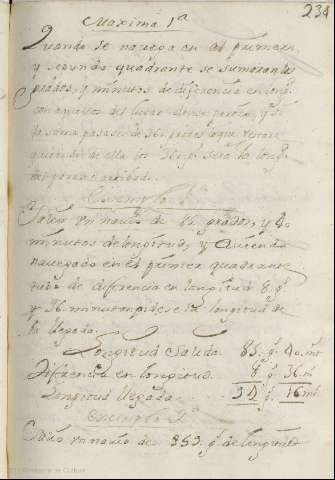 234
Maxima 1ª
Quando se navega en el primer,
y segundo quadrante se sumaran los
grados, y minutos de diferencia en long.
con aquellos del lugar
la suma pasase de 360 grados lo que restare
quitando de ella los 360 sera la long.
del parage arribado.
Exemplo 1º
Salio un navio de grados, y 40
minutos de longitud, y aviendo
navegado en el primer quadrante
tubo de diferencia en longitud 8 g.
y 36 minutos pidese la longitud de
la llegada.
Longitud Salida 85 g. 40 mts
Diferencia en longitud 8 g. 36 m
Longitud llegada g. 16 mts
Exemplo 2º
Salio un navio de 353 g. de longitud